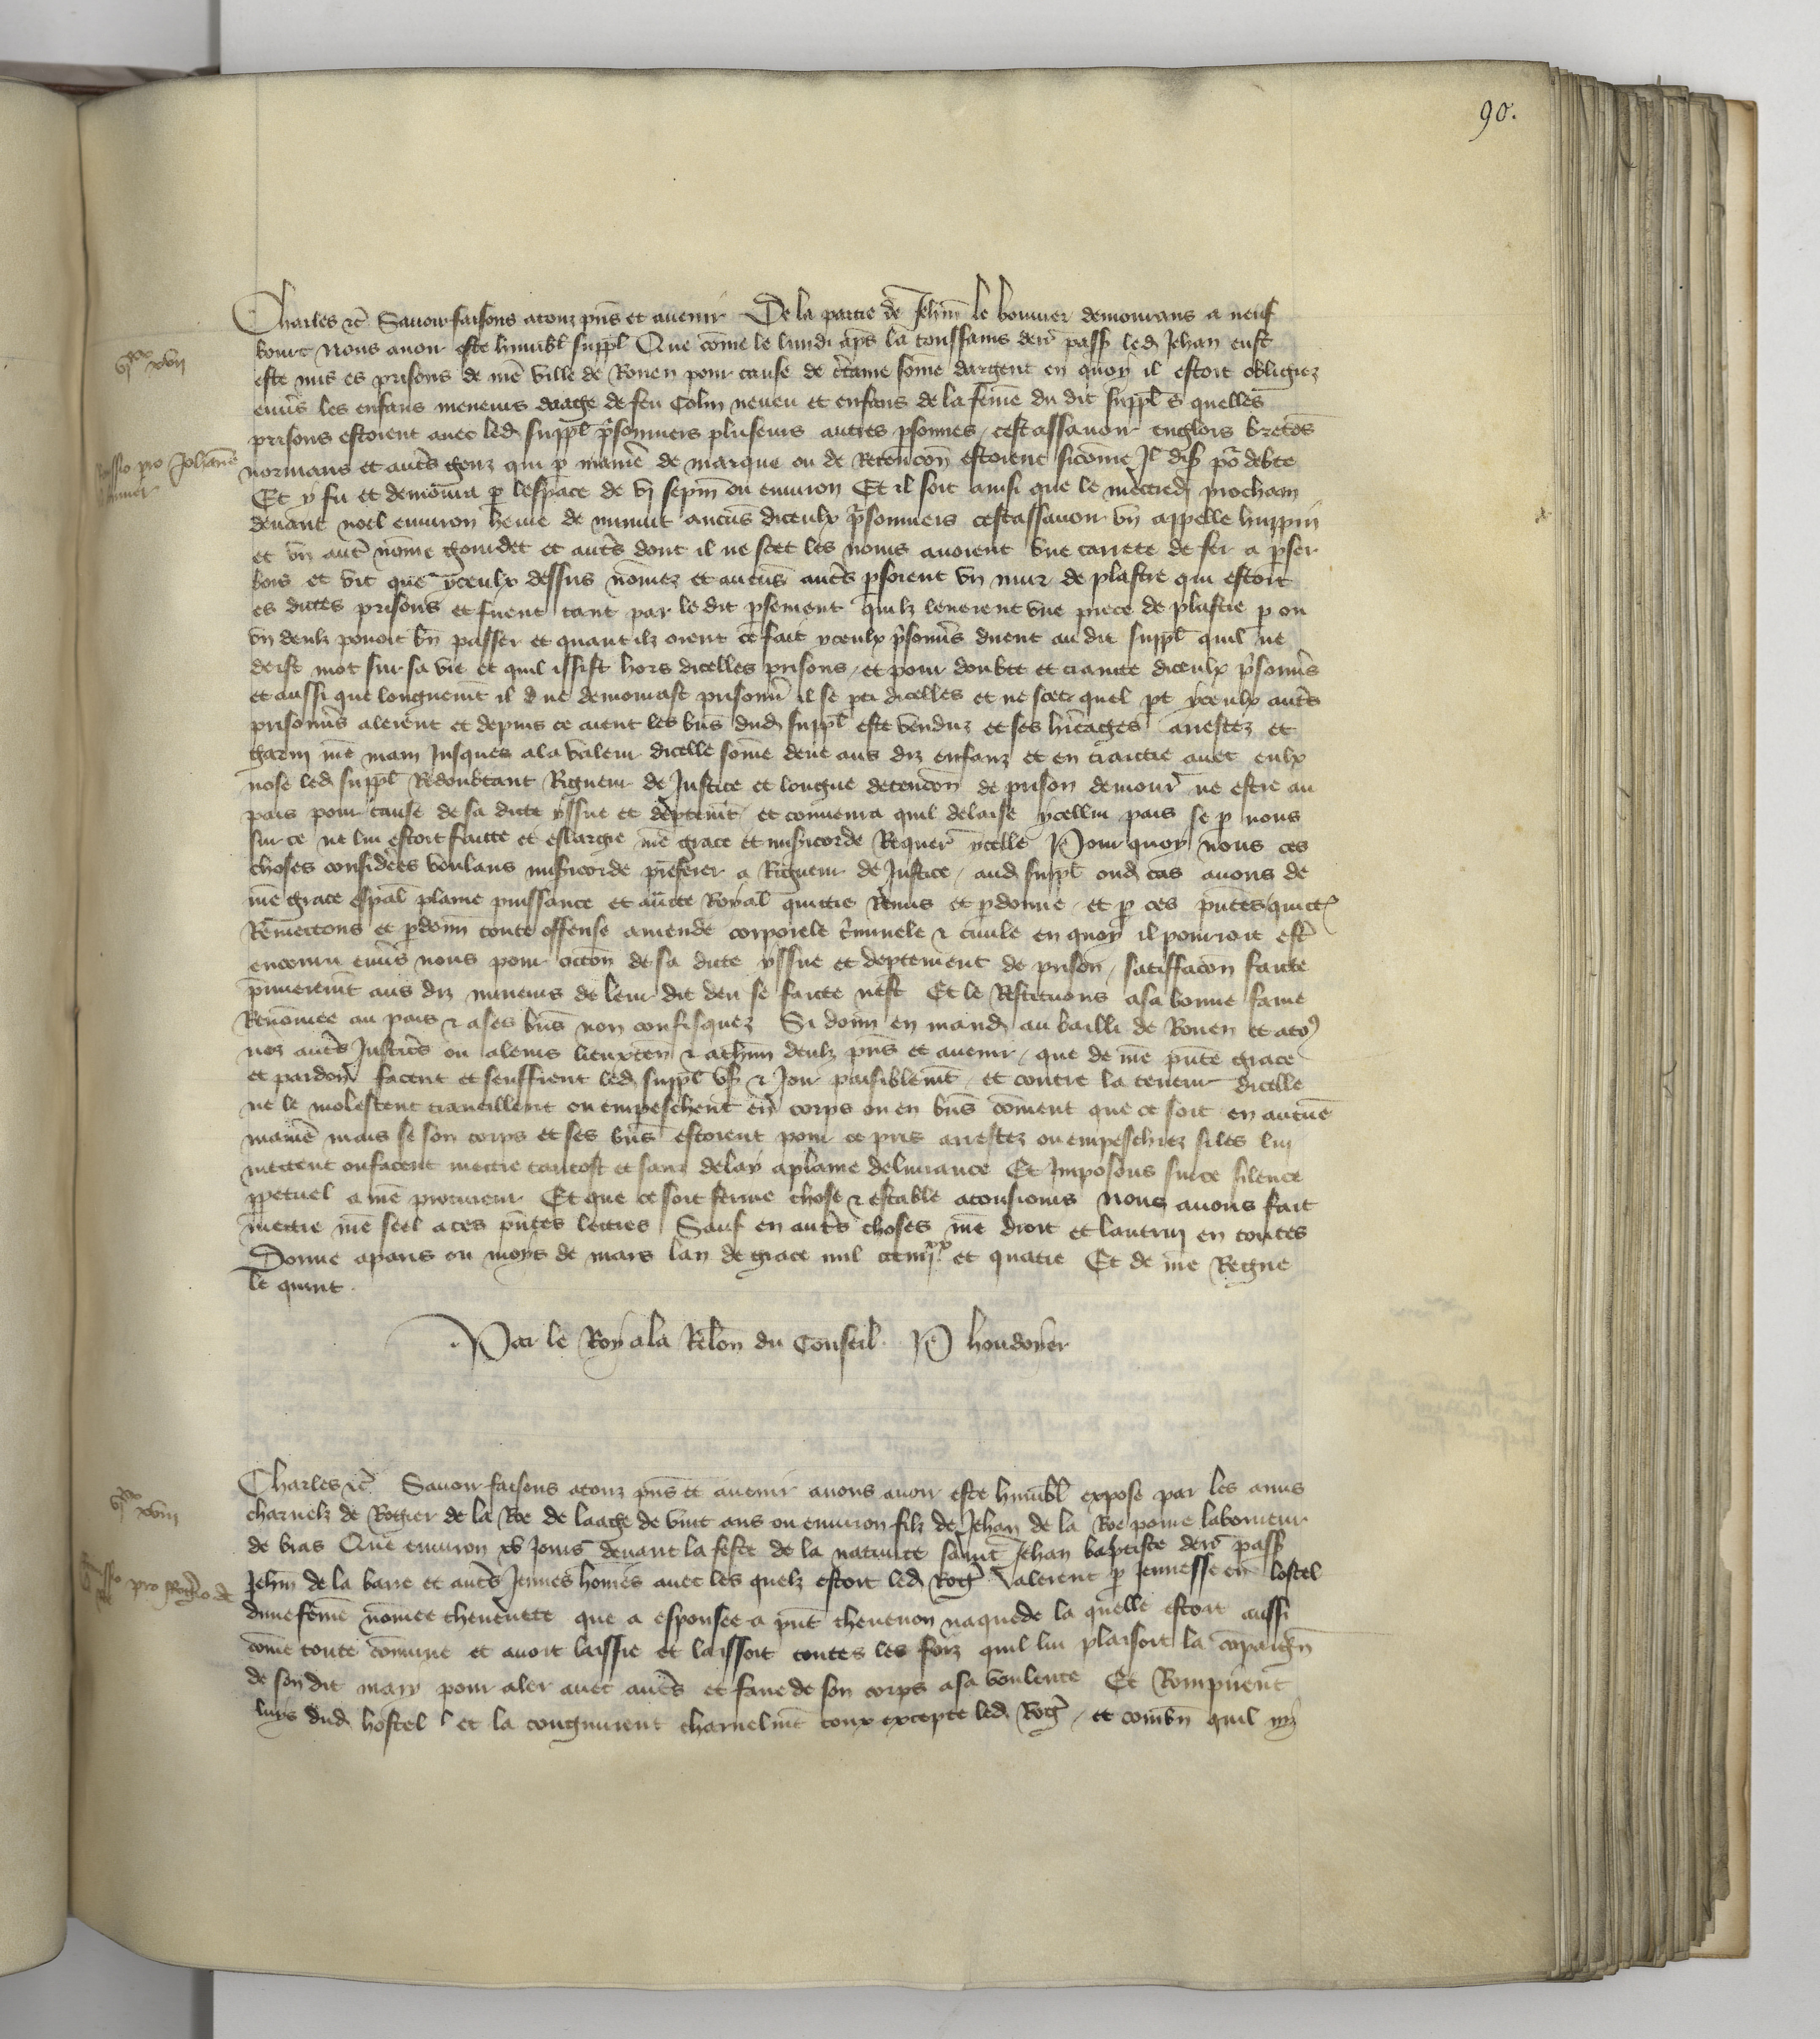 90.
Charles etc̃ Sauoir faisons a touz p̃ns et auenir De la partie de Jehñ le bouuier demourans a neuf
bourc Nous auoir este humbl̃ suppl̃ Que cõme le lundi ap̃s la toussains derr̃ pass̃ led̃ Jehan eust
vjxx xvij
este mis es prisons de nr̃e ville de Rouen pour cause de c̃taine sõme dargent en quoy il estoit obligiez
enuers les enfans meneurs daage de feu Colin neueu et enfans de la fẽme du dit suppl̃ es quelles
prisons estoient auec led̃ suppl̃ p̃sonniers pluseurs autres p̃sonnes / cest assauoir englois bretõs
Remissio pro Johanne
bouuier
normans et aut̃s genz qui p maniẽ de marque ou de Retencõn estoient sicõme Jl dis̃ po͛ debte
Et y fu et demoura p lespace de vj sepm̃ ou enuiron Et il soit ainsi que le mercredj prochain
deuant noel enuiron heure de minuit aucũs diceulx p̃sonniers cest assauoir vn appelle huppin
et vn aut̃ nõme goudet et aut̃s dont il ne scet les noms auoient vne tariere de fer a p̃ser
bois et vit que yceulx dessus nõmez et aucũs aut̃s p̃soient vn mur de plastre qui estoit
es dictes prisons et firent tant par le dit p̃sement quilz leuerent vne piece de plastre p ou
vn deulz pouoit bñ passer et quant ilz orent ce fait yceulx p̃sonñs dirent au dit suppl̃ quil ne
deist mot sur sa vie et quil issist hors dicelles prisons / et pour doubte et crainte diceulx p̃sonñs
et aussi que longuemt̃ il d ne demourast prisonñ il se pti dicelles et ne scet quel pt yceulx aut̃s
prisonñs alerent et depuis ce aient les biẽs dud̃ suppl̃ este venduz et ses hẽitages arrestez et
garni nr̃e main Jusques a la valeur dicelle sõme deue aus diz enfanz et en traictie auec eulx
nose led̃ suppl̃ Redoubtant Rigueur de Justice et longue detencõn de prison demour̃ ne estre au
pais pour cause de sa dicte yssue et deptemt̃ / et conuenra quil delaisse ycellui pais se p nous
sur ce ne lui estoit faicte et eslargie nr̃e grace et mis̃icorde Requer̃ ycelle Pour quoy nous ces
choses considẽes voulans mis̃icorde preferer a Rigueur de Justice / aud̃ suppl̃ oud̃ cas auons de
nr̃e grace esp̃al plaine puissance et auct̃e Royal quictie Remis et p̃donne / et p ces p̃ntes quict͛
Remectons et p̃donñ toute offense amende corporele c̃minele & ciuile en quoy il pourroit est̃
encouru enuers nous pour occõn de sa dicte yssue et deptement de prison / satisfacõn faicte
p̃mieremt̃ aus diz mineurs de leur dit deu se faicte nest Et le Restituons a sa bonne fame
Renõmee au pais & a ses biẽs non confisquez Si donñ en mand̃ au bailli de Rouen et a toꝰ
noz aut̃s Justicĩs ou a leurs lieuxteñ & a chũn deulz p̃ns et auenir / que de nr̃e p̃nte grace
et pardoñ facent et seuffrent led̃ suppl̃ us̃ & Joir paisiblemt̃ / et contre la teneur dicelle
ne le molestent trauaillent ou empeschent en corps ou en biẽs cõment que ce soit en aucũe
maniẽ mais se son corps et ses biẽs estoient pour ce pris arrestez ou empeschiez si les lui
mettent ou facent mettre tantost et sanz delay a plaine deliurance Et Imposons sur ce silence
p̃petuel a nr̃e procureur Et que ce soit ferme chose & estable a tousiours Nous auons fait
mettre nr̃e seel a ces p̃ntes lettres Sauf en aut̃s choses nr̃e droit et lautrui en toutes
Donne a paris ou moys de mars lan de grace mil ccc iiijxx et quatre Et de nr̃e Regne
le quint.
Par le Roy a la Rel̃on du Conseil. P houdoyer
Charles etc̃ Sauoir faisons a touz p̃ns et auenir auons auoir este humbl̃ expose par les amis
vjxx xviij
charnelz de Rogier de la Roe de laage de vint ans ou enuiron filz de Jehan de la Roe poure laboureur
de bras Que enuiron xv Jours deuant la feste de la natiuite saint Jehan baptiste derr̃ pass̃
Remissio pro Rogero de
Jehñ de la barre et aut̃s Jeunes hõmes auec les quelz estoit led̃ Rog̃ / alerent p Jeunesse en lostel
dune fẽme nõmee cheuenete que a espousee a p̃nt theuenon naquede la quelle estoit aussi
cõme toute cõmune et auoit laissie et laissoit toutes les foiz quil lui plaisoit la cõpaign̄
de son dit mary pour aler auec aut̃s et faire de son corps a sa voulente Et Rompirent
luys dud̃ hostel et la congnurent charnelmt̃ tout excepte led̃ Rog̃ / et combñ quil ny